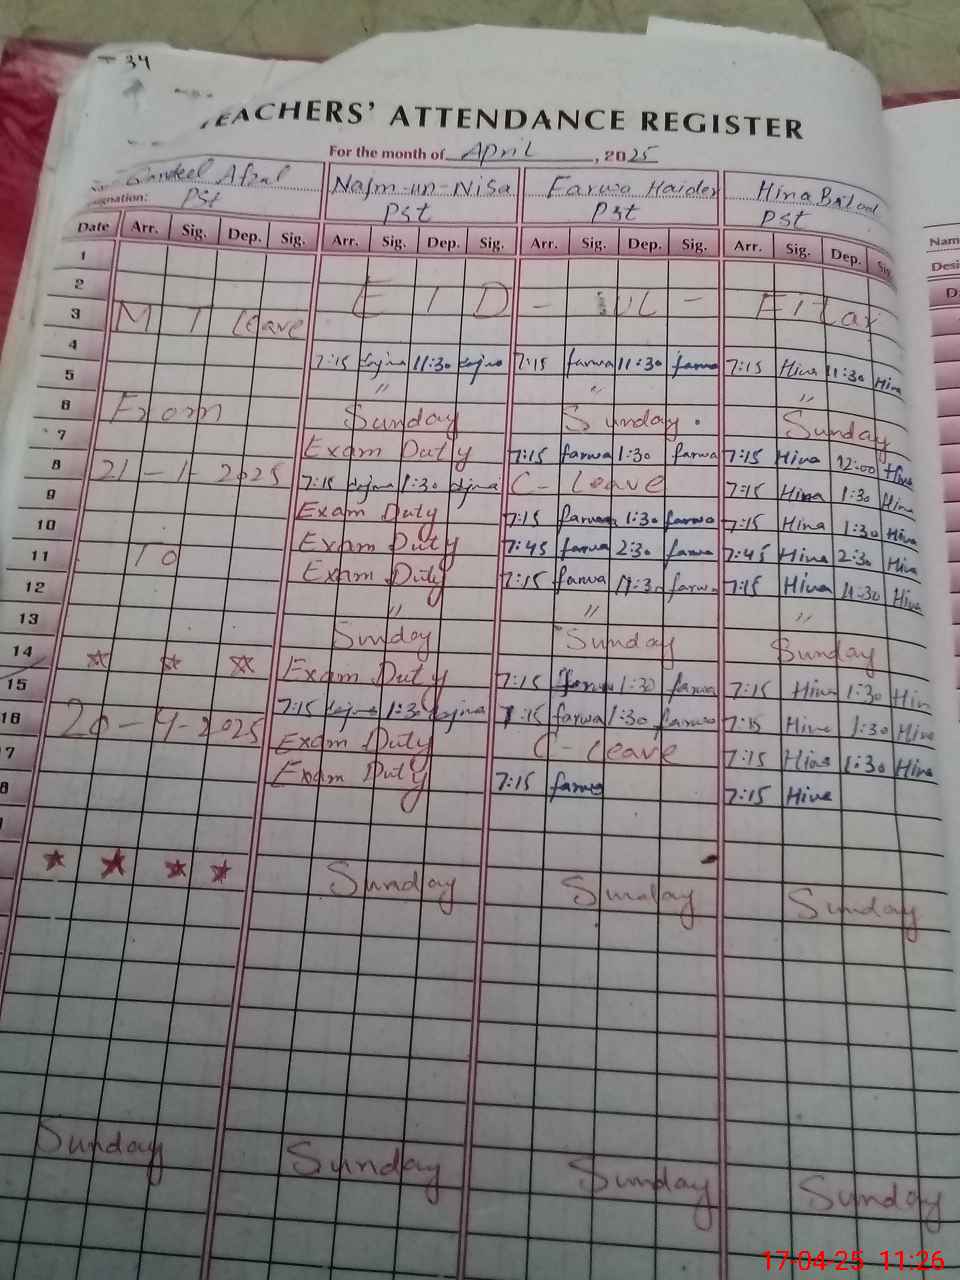 34
TEACHERS' ATTENDANCE REGISTER
For the month of April, 2025
Afzal Najm-un-Nisa Farwa Haider Hina
gnation: Pst Pst Pst Pst
Date Arr. Sig. Dep. Sig. Arr. Sig. Dep. Sig. Arr. Sig. Dep. Sig. Arr. Sig. Dep. Sig.
Nam
Desi
D
1
2 E I D - UL - FITar
3 M T Leave
4 7:15 11:30 7:15 farwa 11:30 farwa 7:15 Hina 11:30 Hina
5 " " "
6 From Sunday Sunday . Sunday
7 Exam Duty 7:15 farwa 1:30 farwa 7:15 Hina 12:00 Hina
8 21-1-2025 7:15 1:30 C-Leave 7:15 Hina 1:30 Hina
9 Exam Duty 7:15 farwa 1:30 farwa 7:15 Hina 1:30 Hina
10 Exam Duty 7:45 farwa 2:30 farwa 7:45 Hina 2:30 Hina
11 To Exam Duty 7:15 farwa 11:30 farwa 7:15 Hina 11:30 Hina
12 " " "
13 Sunday Sunday Sunday
14 Exam Duty 7:15 farwa 1:30 farwa 7:15 Hina 1:30 Hina
15 7:15 1:30 7:15 farwa 1:30 farwa 7:15 Hina 1:30 Hina
16 20-4-2025 Exam Duty C-Leave 7:15 Hina 1:30 Hina
7 Exam Duty 7:15 farwa 7:15 Hina
8
Sunday Sunday Sunday
Sunday Sunday Sunday Sunday
17-04-25 11:26